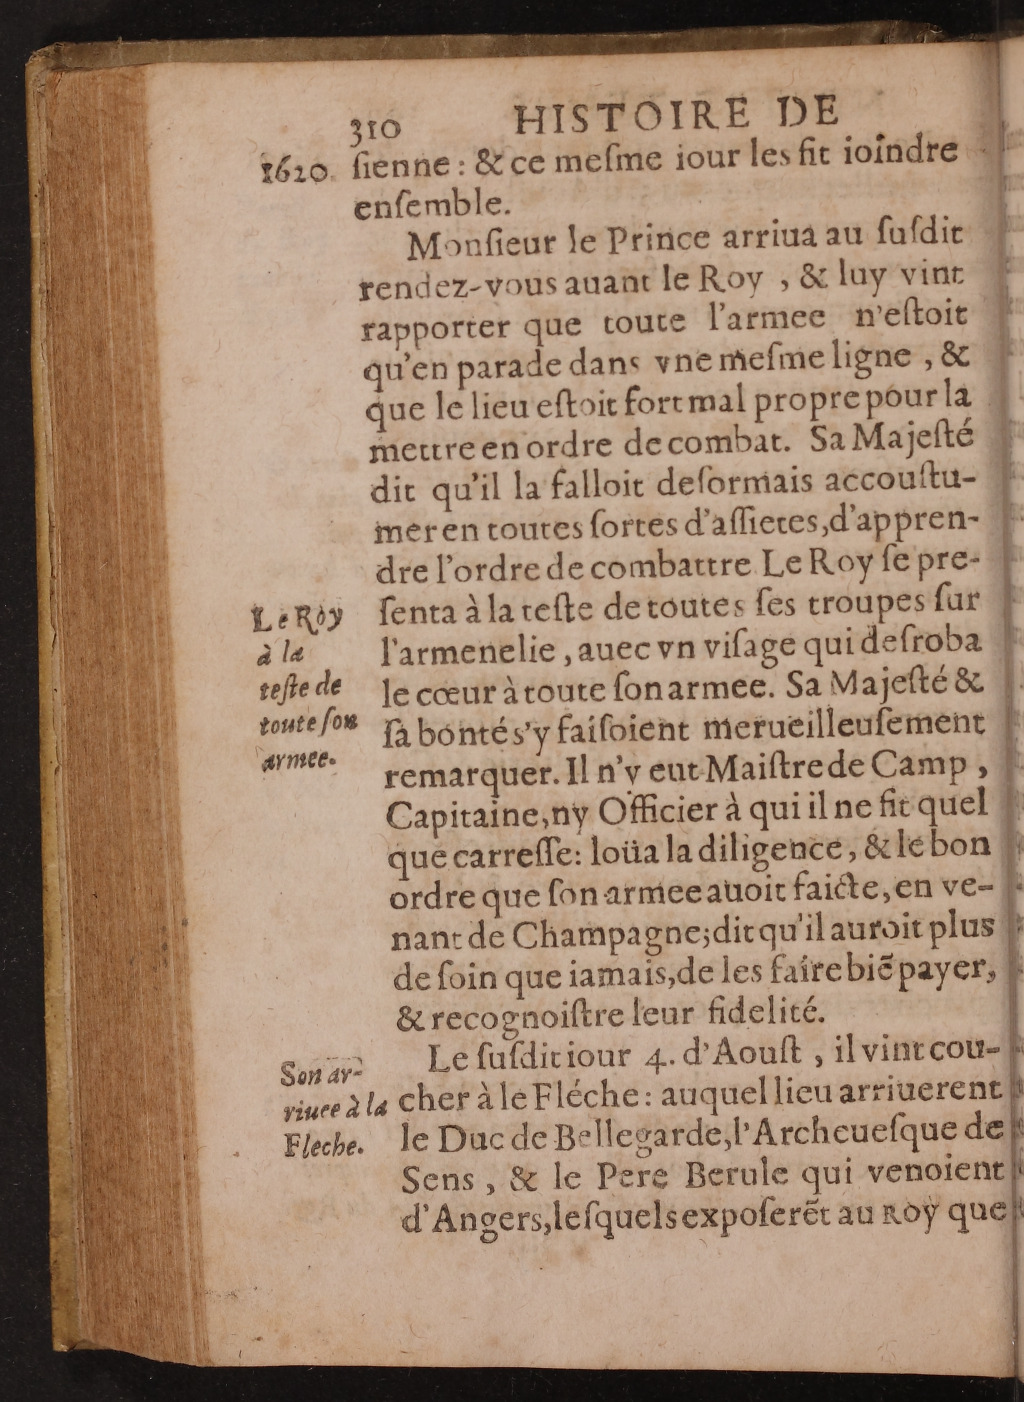 310 HISTOIRE DE
1620. ſienne : & ce meſme iour les fit ioindre
enſemble.
Monſieur le Prince arriua au ſuſdit
rendez-vous auant le Roy , & luy vint
rapporter que toute l'armee n'eſtoit
qu'en parade dans vne meſme ligne , &
que le lieu eſtoit fort mal propre pour la
mettre en ordre de combat. Sa Majeſté
dit qu'il la falloit deſormais accouſtu-
mer en toutes ſortes d'aſſietes,d'appren-
dre l'ordre de combattre Le Roy ſe pre-
ſenta à la teſte de toutes ſes troupes ſur
l'armenelie , auec vn viſage qui deſroba
le cœur à toute ſon armee. Sa Majeſté &
ſa bonté s'y faiſoient merueilleuſement
remarquer. Il n'y eut Maiſtre de Camp ,
Capitaine,ny Officier à qui il ne fit quel
que carreſſe: loüa la diligence , & le bon
ordre que ſon armee auoit faicte, en ve-
nant de Champagne;dit qu'il auroit plus
de ſoin que iamais,de les faire biẽ payer,
& recognoiſtre leur fidelité.
Le ſuſdit iour 4. d'Aouſt , il vint cou-
cher à le Fléche : auquel lieu arriuerent
le Duc de Bellegarde,l'Archeueſque de
Sens , & le Pere Berule qui venoient
d'Angers,leſquels expoſerẽt au Roy que
Le Roy
à la
teſte de
toute ſon
armee.
Son ar-
riuee à la
Fleche.